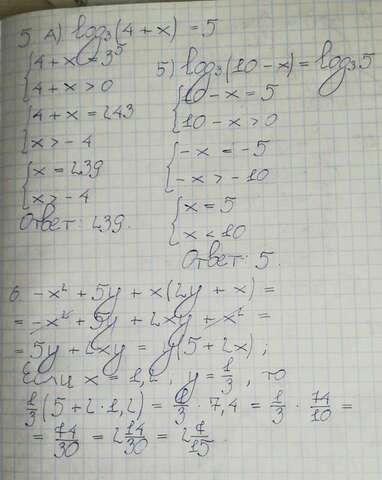 5. А) log₃(4+x) = 5
{4+x = 3⁵
{4+x > 0
{4+x = 243
{x > -4
{x = 239
{x > -4
Ответ: 239.
Б) log₃(10-x) = log₃5
{10-x = 5
{10-x > 0
{-x = -5
{-x > -10
{x = 5
{x < 10
Ответ: 5.
6. -x² + 5y + x(2y + x) =
= -x² + 5y + 2xy + x² =
= 5y + 2xy = y(5 + 2x);
Если x = 1,2, y = 1/3, то
1/3(5 + 2·1,2) = 1/3 · 7,4 = 1/3 · 74/10 =
= 74/30 = 2 14/30 = 2 7/15.